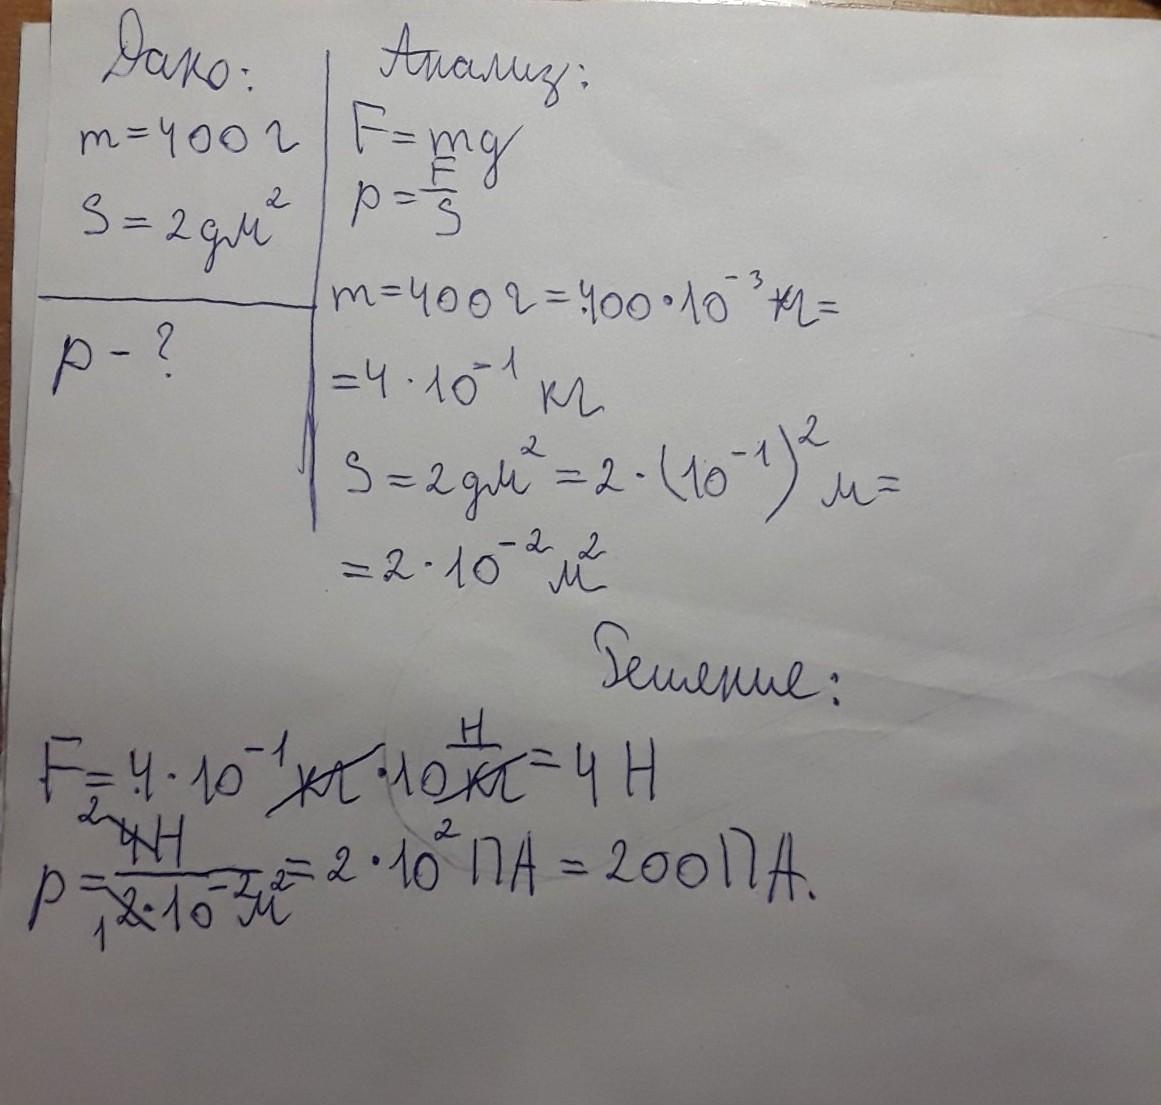 Дано:
m=400 г
S = 2 дм²
p - ?
Анализ:
F=mg
p = F/S
m=400 г =400·10⁻³ кг=
=4·10⁻¹ кг
S = 2 дм² = 2·(10⁻¹)² м=
=2·10⁻² м²
Решение:
F = 4·10⁻¹ кг ·10 Н/кг = 4 Н
p = 4Н/2·10⁻² м² = 2·10² ПА = 200 ПА.
2
1